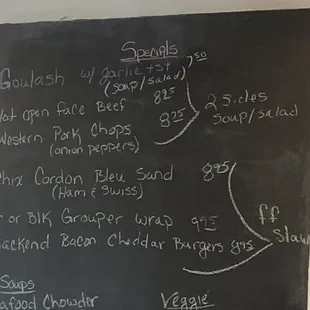 Specials
Goulash w/ garlic tst 7.50
(soup/salad)
Hot open face Beef 8.25
Western Pork Chops 8.25
(onion peppers)
2 Sides
Soup/salad
Chix Cordon Bleu Sand 8.95
(Ham & Swiss)
or Blk Grouper Wrap 9.95
Blackend Bacon Cheddar Burgers 8.95
ff
Slaw
Soups
Seafood Chowder
Veggie